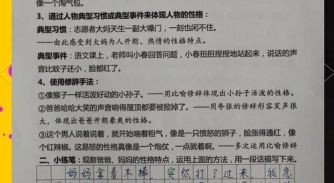 像一个淘气包。
3、通过人物典型习惯或典型事件来体现人物的性格：
典型习惯：志愿者大妈天生一副大嗓门，一刻也闲不住。
——由此感受到大妈为人开朗、热情的性格特点。
典型事件：语文课上，老师叫小春回答问题，小春扭扭捏捏地站起来，说话的声
音比蚊子还小，脸都红了。
4、使用修辞手法：
①像猴子一样活泼好动的小孙子。——用比喻修辞体现出小孙子活泼的性格。
②爸爸哈哈大笑的声音响得屋顶都要被掀掉了。——用夸张的修辞形容笑声很
大，体现出爸爸开朗豪爽的性格。
③这个男人说着说着，就开始喘着粗气，像是一只愤怒的狮子，脸涨得通红，像
个红辣椒。这易怒的性格真像是一个炮仗，一点就着啊。——多次运用比喻修辞
二、小练笔：观察爸爸、妈妈的性格特点，运用上面的方法，用一段话描写下来。
妈妈拿着木棒，突然打了过来，我急